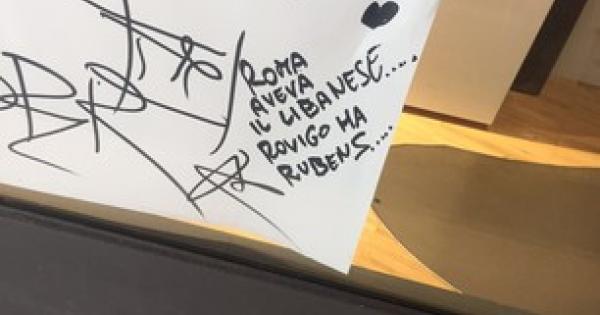 ROMA
AVEVA
IL LIBANESE.....
ROVIGO HA
RUBENS....